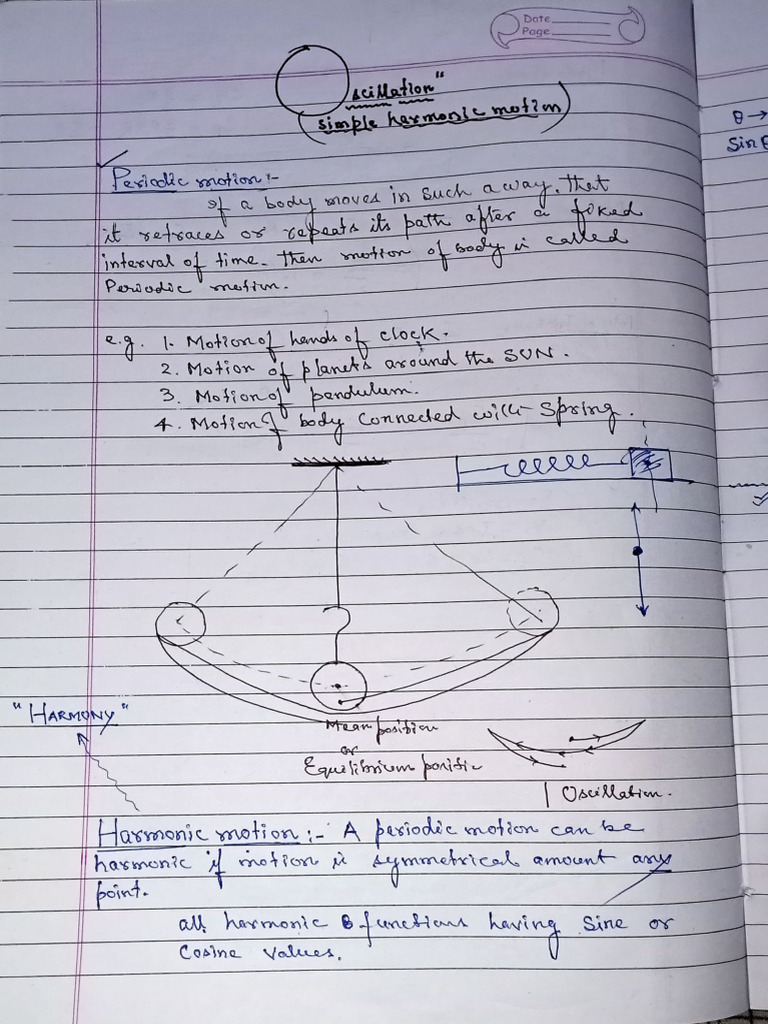 Date
Page
Oscillation"
(simple harmonic motion)
Periodic motion :-
If a body moves in such a way. That
it retraces or repeats its path after a fixed
interval of time. then motion of body is called
Periodic motion.
e.g. 1. Motion of hands of clock.
2. Motion of planets around the SUN.
3. Motion of pendulum.
4. Motion of body connected with Spring.
"HARMONY"
Mean position
or
Equilibrium positi
1 Oscillation.
Harmonic motion :- A periodic motion can be
harmonic if motion is symmetrical amount any
point.
all harmonic functions having Sine or
Cosine values.
θ →
Sin θ